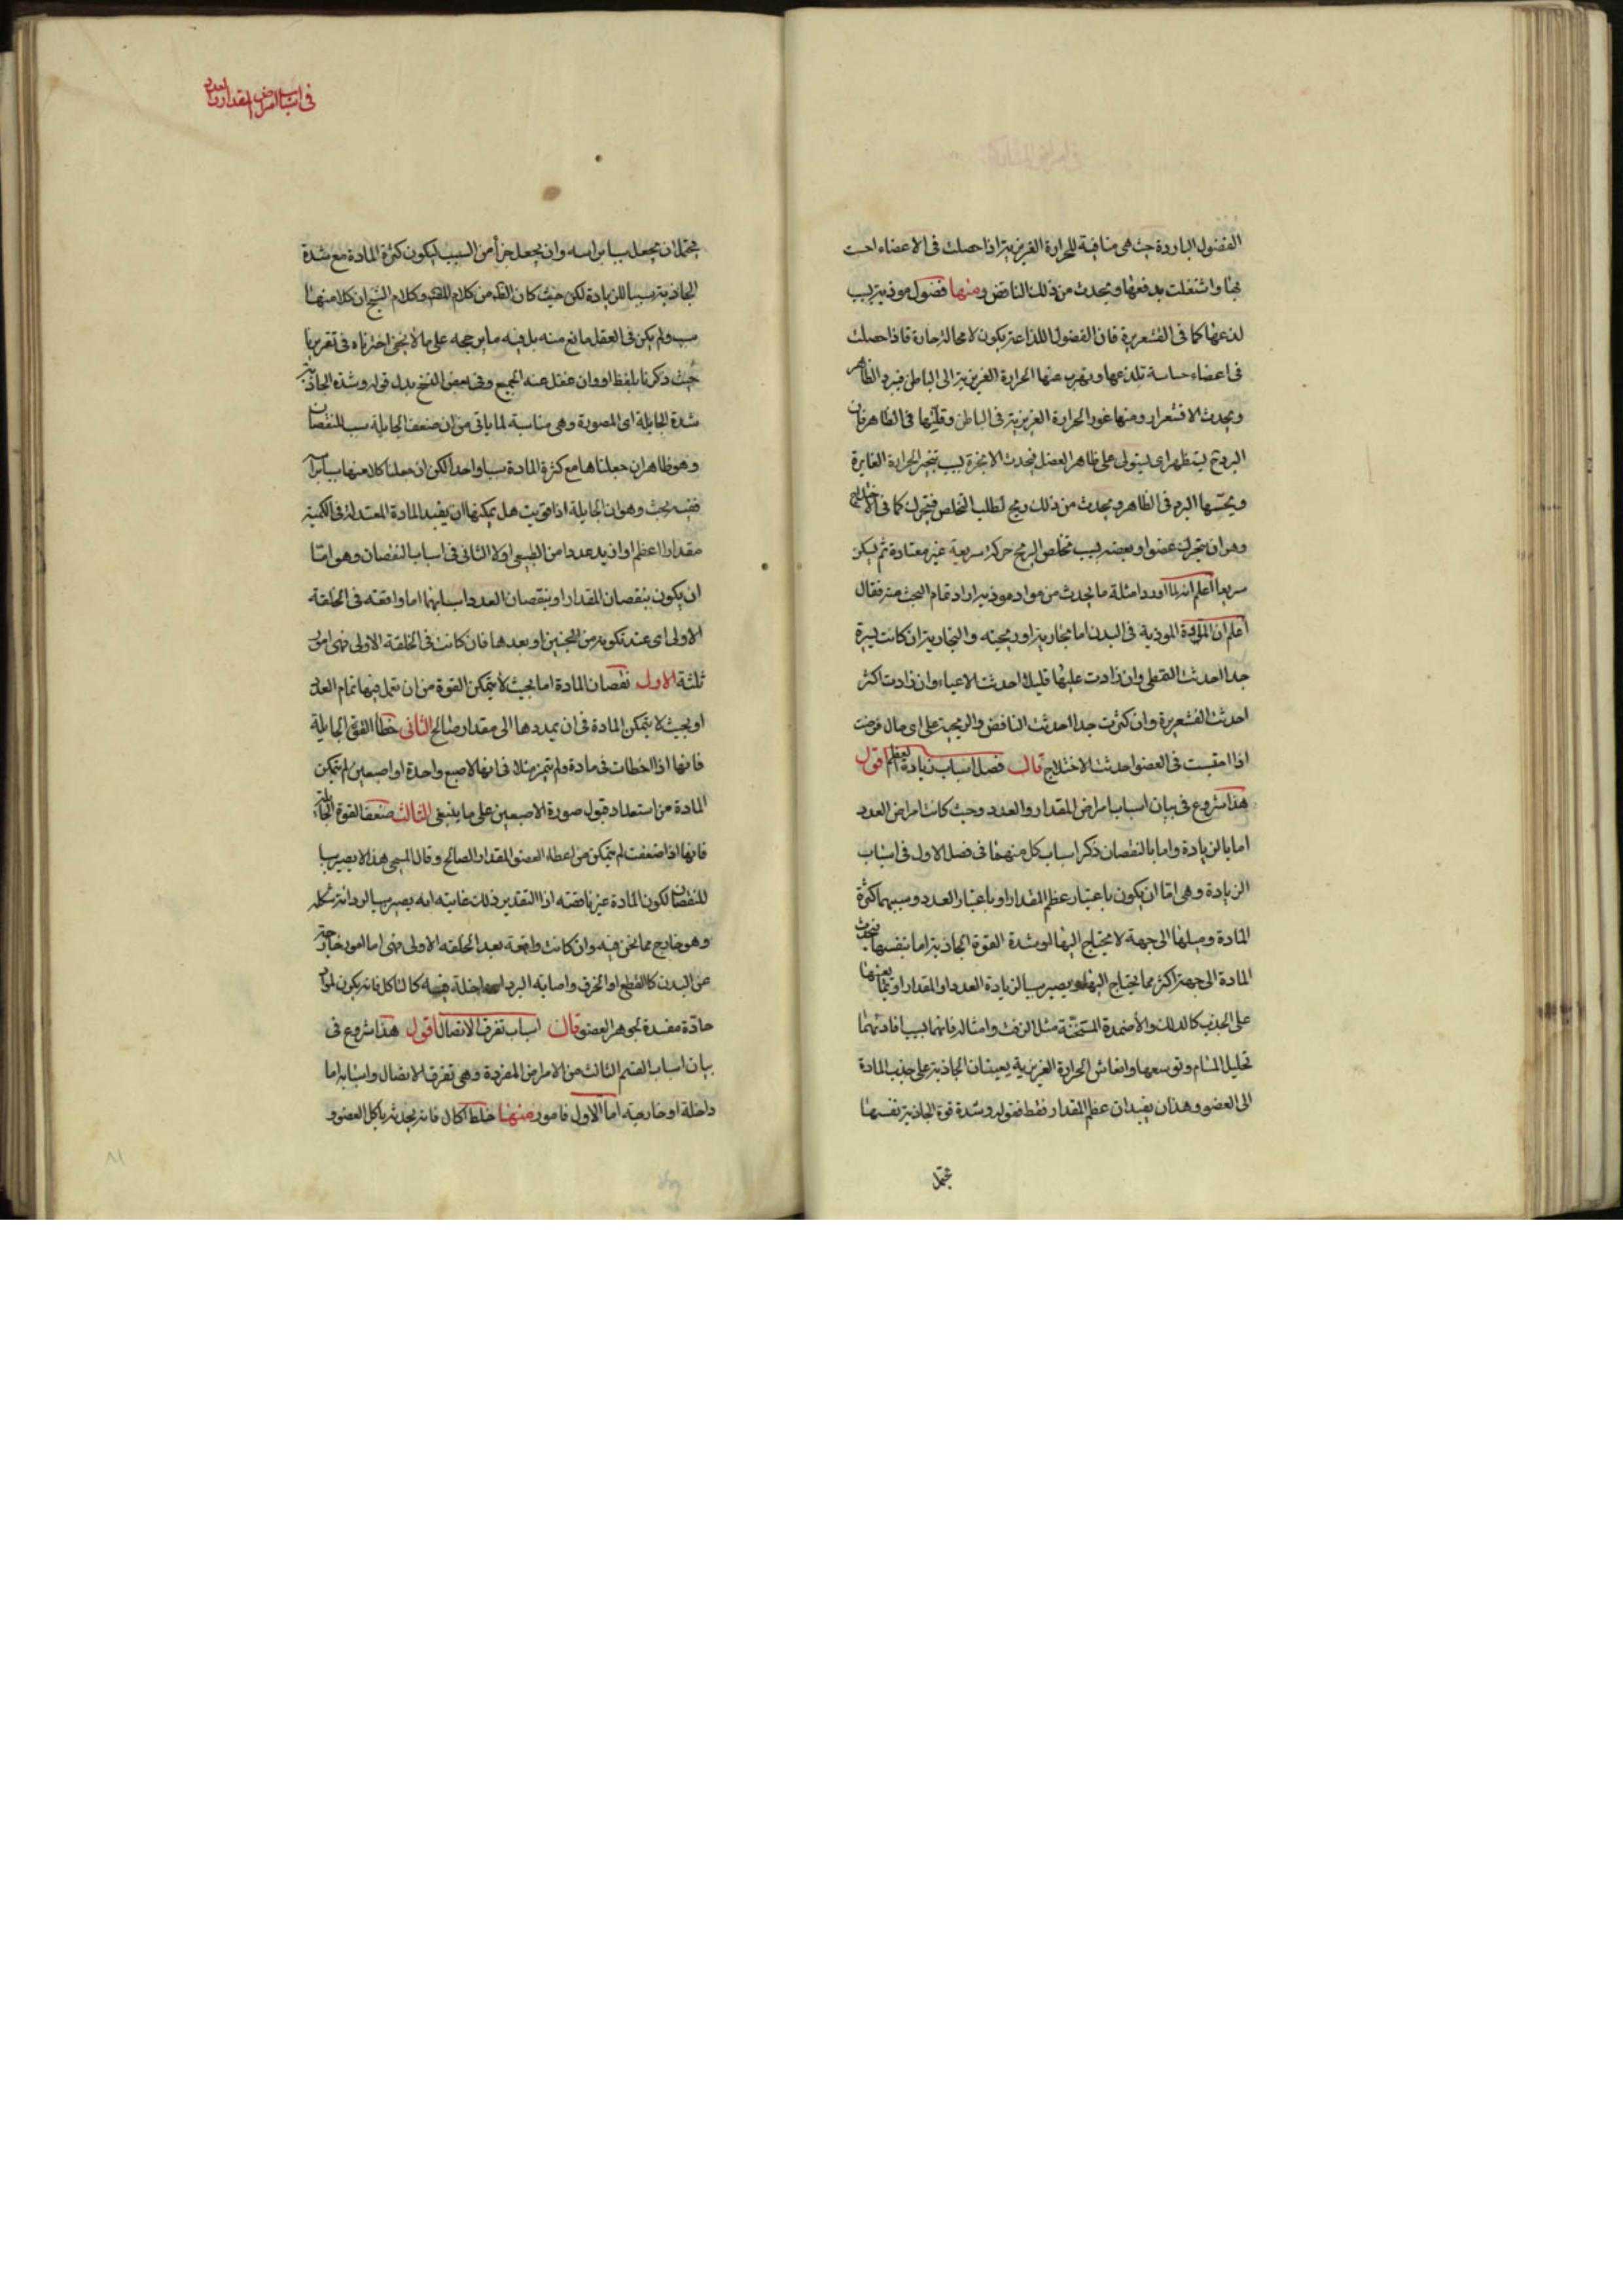 الفضول الباردة حيث هى منافية للحرارة الغريزية اذا حصلت فى الاعضاء احست
بها واشتغلت بدفعها ويحدث من ذلك النافض ومنها فضول موذية بسبب
لذعها كما فى القشعريرة فان الفضول اللذاعة يكون لا محالة حارة فاذا حصلت
فى اعضاء حساسة تلذعها ويهرب عنها الحرارة الغريزية الى الباطن فيبرد الظاهر
ويحدث الاقشعرار ومنها غور الحرارة الغريزية فى الباطن وقلتها فى الظاهر فان
البرد ح يستظهر اى يستولى على ظاهر العضل فيحدث الابخرة بسبب تبخير الحرارة الغايرة
ويحبسها البرد فى الظاهر ويحدث من ذلك ريح لطلب التخلص فيتحرك كما فى الاختلاج
وهو ان يتحرك عضو او بعضه بسبب تخلص الريح حركة سريعة غير معتادة ثم يسكن
سريعا اعلم انه لما اورد امثلة ما يحدث من مواد موذية اراد تمام البحث عنه فقال
اعلم ان المادة الموذية فى البدن اما بخارية او ريحية والبخارية ان كانت يسيرة
جدا احدثت التمطى وان زادت عليها قليلا احدثت الاعياء وان زادت اكثر
احدثت القشعريرة وان كثرت جدا احدثت النافض والريحية على اى حال فرضت
اذا احتقنت فى العضو احدثت الاختلاج قال فصل اسباب زيادة العظم اقول
هذا شروع فى بيان اسباب امراض المقدار والعدد وحيث كانت امراض العدد
اما بالزيادة واما بالنقصان ذكر اسباب كل منهما فى فصل الاول فى اسباب
الزيادة وهى اما ان يكون باعتبار عظم المقدار او باعتبار العدد وسببهما كثرة
المادة وميلها الى جهة لا يحتاج اليها او شدة القوة الجاذبة اما بنفسها فيجذب
المادة الى جهة اكثر مما يحتاج اليها ويصير سببا لزيادة العدد او المقدار او بما يعينها
على الجذب كالدلك والأضمدة المسخنة مثل الزفت وامثاله فانهما بسبب افادتهما
تحليل المسام وتوسيعها وانعاش الحرارة الغريزية يعينان الجاذبة على جذب المادة
الى العضو وهذان يفيدان عظم المقدار فقط فقوله وشدة قوة الجاذبة نفسها
يحتمل
فى اسباب امراض المقدار والعدد
يحتمل ان يجعل سببا براسه وان يجعل جزأ من السبب ليكون كثرة المادة مع شدة
الجاذبة سببا للزيادة لكن حيث كان الظ من كلام المص وكلام الشيخ ان كلا منهما
سبب ولم يكن فى العقل مانع منه بل فيه ما يرجحه على ما لا يخفى اخترناه فى تقريرنا
حيث ذكرنا بلفظ او وان غفل عنه الجميع وفى بعض النسخ بدل قوله وشدة الجاذبة
شدة الجابلة اى المصورة وهى مناسبة لما ياتى من ان ضعف الجابلة سبب للنقصان
وهو ظاهر ان جعلناها مع كثرة المادة سببا واحدا لكن ان جعلنا كلا منها سببا براسه
ففيه بحث وهو ان الجابلة اذا قويت هل يمكنها ان يفيد المادة المعتدلة فى الكمية
مقدارا اعظم او ازيد عددا من الطبيعى او لا الثانى فى اسباب النقصان وهو اما
ان يكون بنقصان المقدار او بنقصان العدد اسبابهما اما واقعة فى الخلقة
الاولى اى عند تكونه من الجنين او بعدها فان كانت فى الخلقة الاولى فهى امور
ثلثة الاول نقصان المادة اما بحيث لا يتمكن القوة من ان تعمل فيها تمام العدد
او بحيث لا يتمكن المادة فى ان يمددها الى مقدار صالح الثانى خطأ القوة الجابلة
فانها اذا اخطات فى مادة ولم تتميز مثلا فى انها لاصبع واحدة او اصبعين لم يتمكن
المادة من استعداد قبول صورة الاصبعين على ما ينبغى الثالث ضعف القوة الجابلة
فانها اذا ضعفت لم يتمكن من اعطاء العضو المقدار الصالح وقال المسيحى هذا لا يصير سببا
للنقصان لكون المادة غير ناقصة اذ التقدير ذلك غايته انه يصير سببا لرداءة شكله
وهو خارج مما نحن فيه وان كانت واقعة بعد الخلقة الاولى فهى اما امور خارجة
عن البدن كالقطع او الحرق واصابة البرد او داخلة فيه كالتاكل فانه يكون لمواد
حادة مفسدة لجوهر العضو قال اسباب تفرق الاتصال اقول هذا شروع فى
بيان اسباب القسم الثالث من الامراض المفردة وهى تفرق الاتصال واسبابه اما
داخلة او خارجية اما الاول فامور منها خلط اكال فانه يحدثه بأكل العضو و
٨١